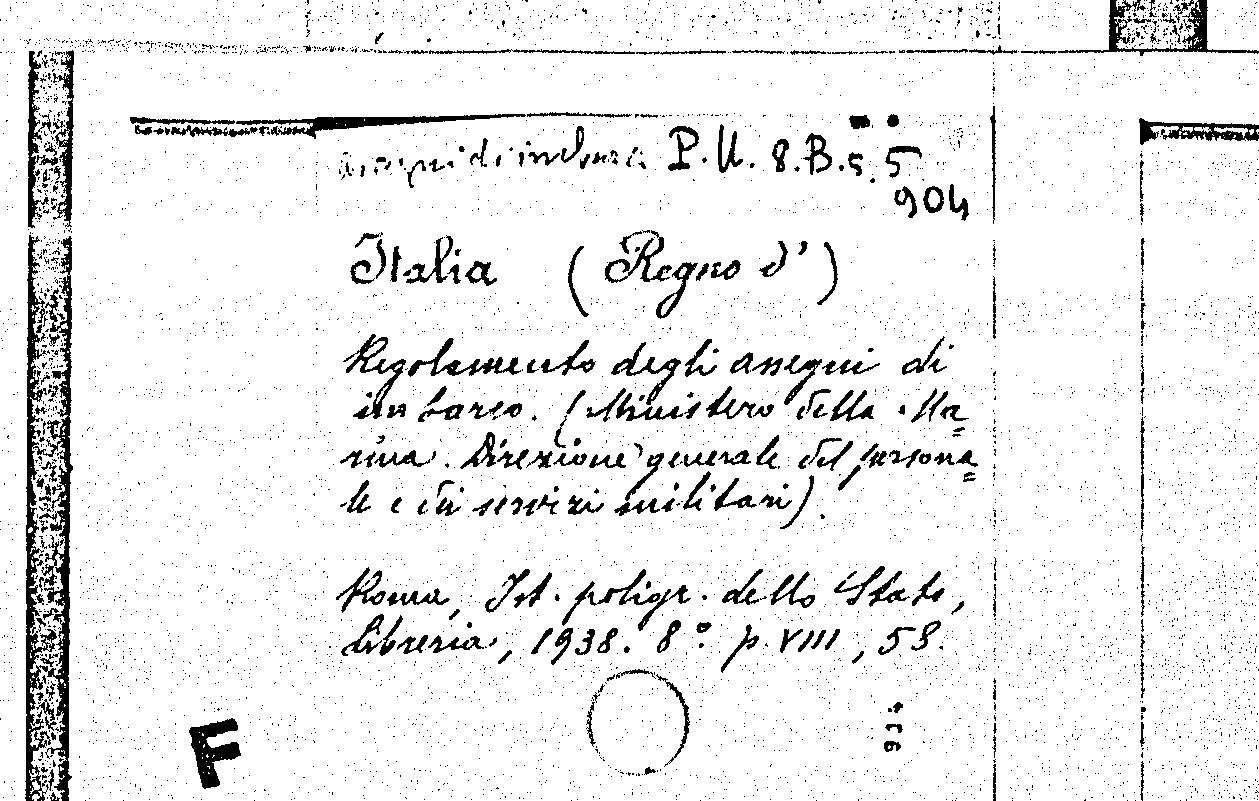 assegni di imbarco P.U. 8.B.5.5
904
Italia (Regno d')
Regolamento degli assegni di
imbarco. (Ministero della Ma=
rina. Direzione generale del persona=
le e dei servizi militari).
Roma, Ist. poligr. dello Stato,
Libreria, 1938. 8° p. VIII, 58.
904
F